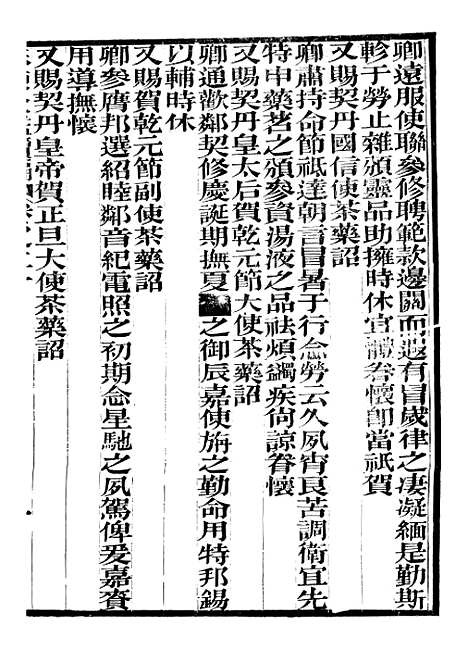 卿遠服使聯參修聘範款邊關而遐有冒歲律之凄凝緬是勤斯
軫于勞止雜頒靈品助擁時休宜體眷懷卽當祇賀
又賜契丹國信使茶藥詔
卿肅持命節祇達朝言冒暑于行念勞云久夙宵良苦調衛宜先
特申藥茗之頒參資湯液之品祛煩蠲疾尚諒眷懷
又賜契丹皇太后賀乾元節大使茶藥詔
卿通歡鄰契修慶誕期撫夏之御辰嘉使旃之勤命用特邦錫
以輔時休
又賜賀乾元節副使茶藥詔
卿參膺邦選紹睦鄰音紀電照之初期念星馳之夙駕俾爰嘉賚
用導撫懷
又賜契丹皇帝賀正旦大使茶藥詔